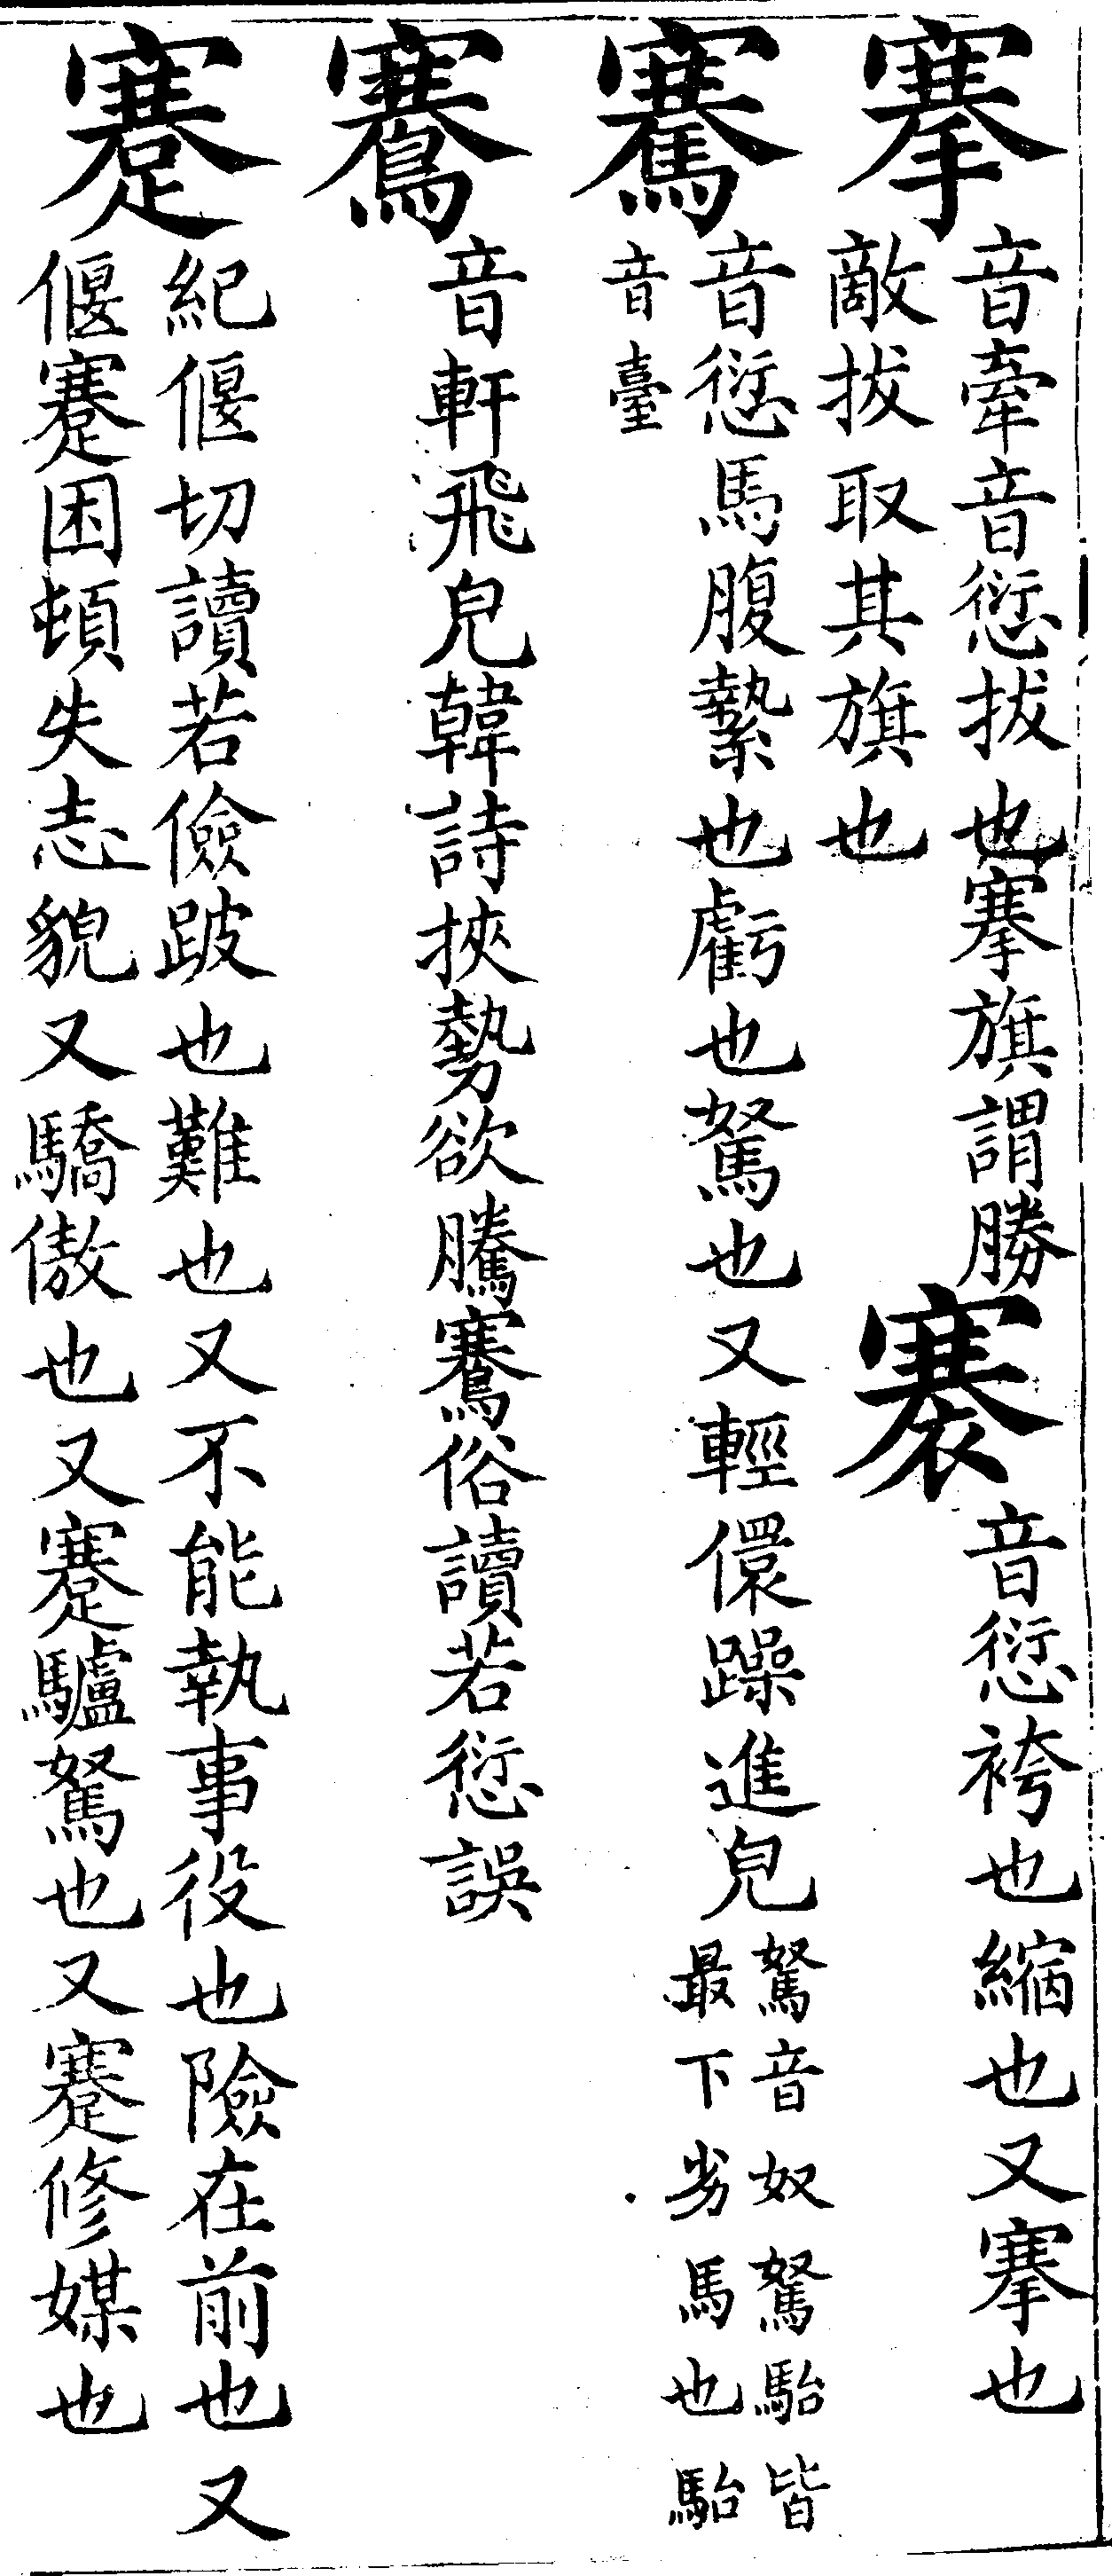 搴
音牽音愆拔也搴旗謂勝
敵拔取其旗也
褰
音愆袴也縮也又搴也
騫
音愆馬腹縶也虧也駑也又輕儇躁進皃
駑音奴駑駘皆
最下劣馬也駘
音臺
鶱
音軒飛皃韓詩挾勢欲騰鶱俗讀若愆誤
蹇
紀偃切讀若儉跛也難也又不能執事役也險在前也又
偃蹇困頓失志貌又驕傲也又蹇驢駑也又蹇修媒也